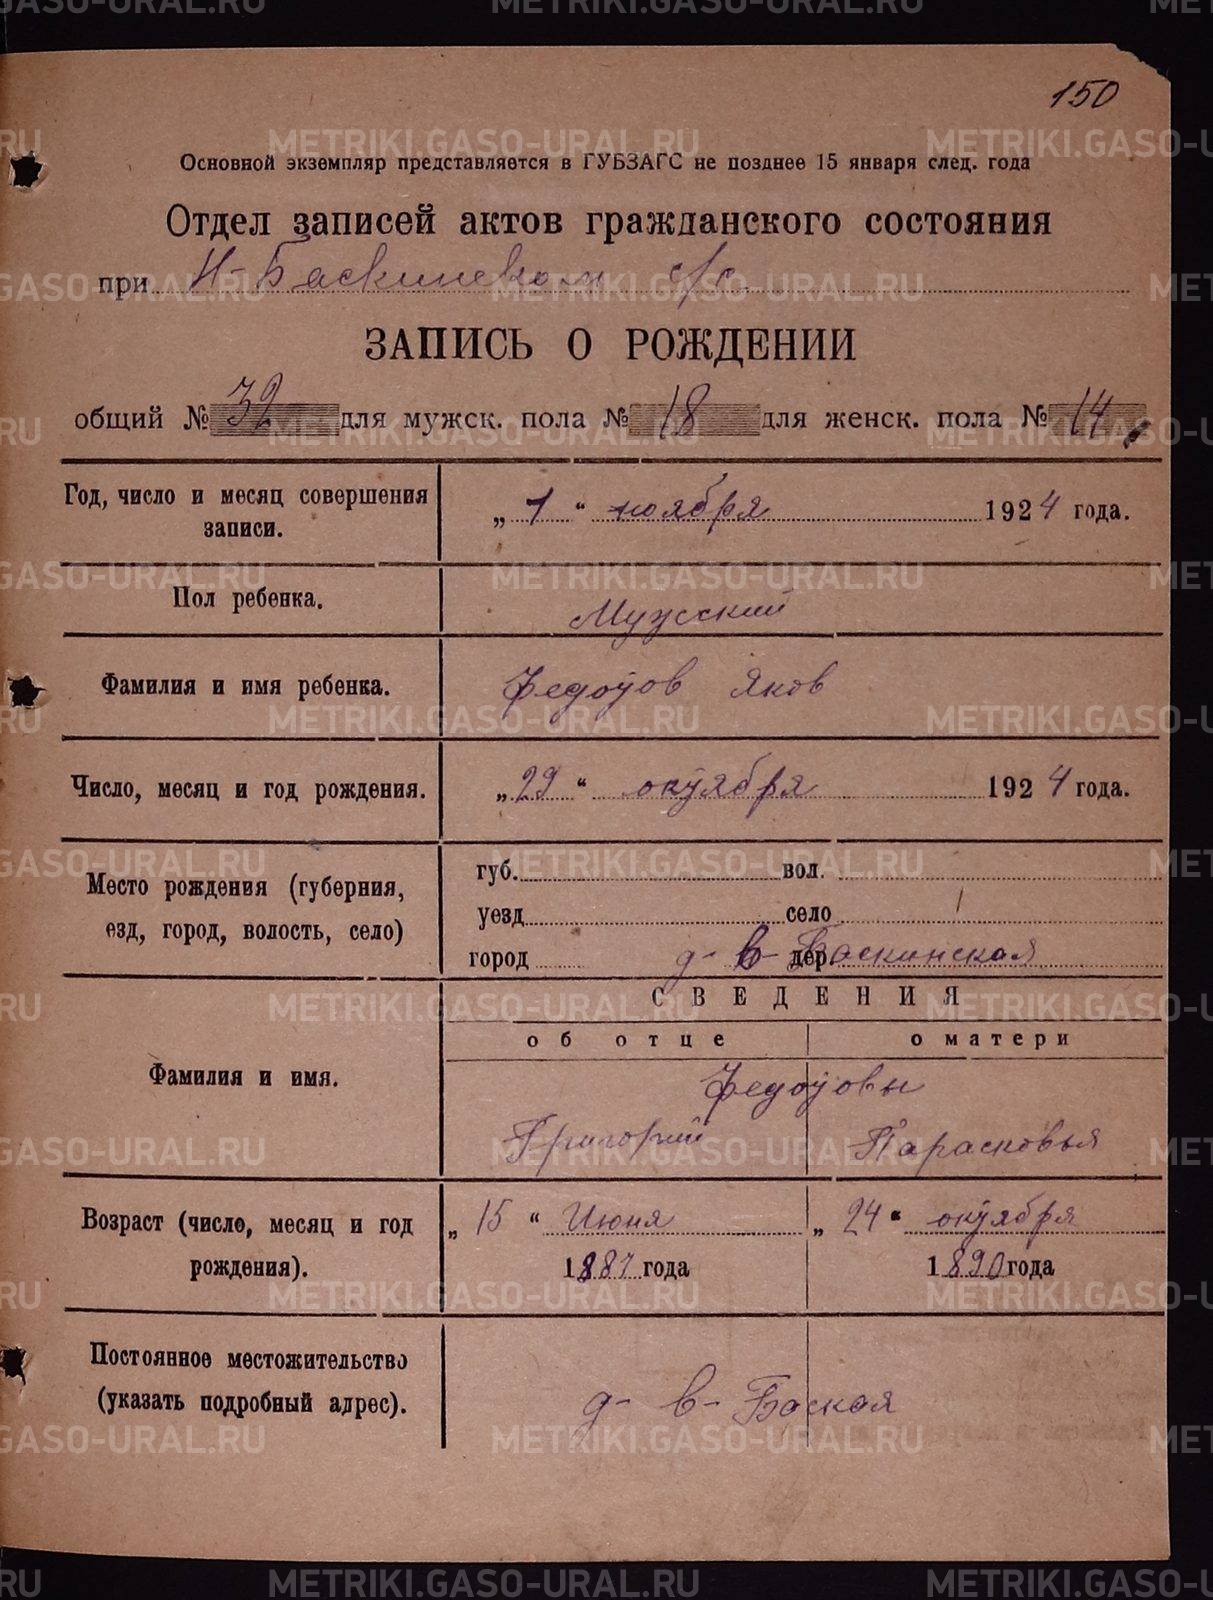 150
Основной экземпляр представляется в ГУБЗАГС не позднее 15 января след. года
Отдел записей актов гражданского состояния
при Н-Баскинском с/с.
ЗАПИСЬ О РОЖДЕНИИ
общий № 32 для мужск. пола № 18 для женск. пола № 14
Год, число и месяц совершения записи.
„ 1 “ ноября 1924 года.
Пол ребенка.
Мужский
Фамилия и имя ребенка.
Федотов Яков
Число, месяц и год рождения.
„ 29 “ октября 1924 года.
Место рождения (губерния,
езд, город, волость, село)
губ. вол.
уезд село
город дер.
д- в- Баскинская
СВЕДЕНИЯ
об отце о матери
Фамилия и имя.
Федотовы
Григорий Парасковья
Возраст (число, месяц и год рождения).
„ 15 “ Июня „ 24 “ октября
1887 года 1890 года
Постоянное местожительство
(указать подробный адрес).
д- в- Баская
METRIKI.GASO-URAL.RU